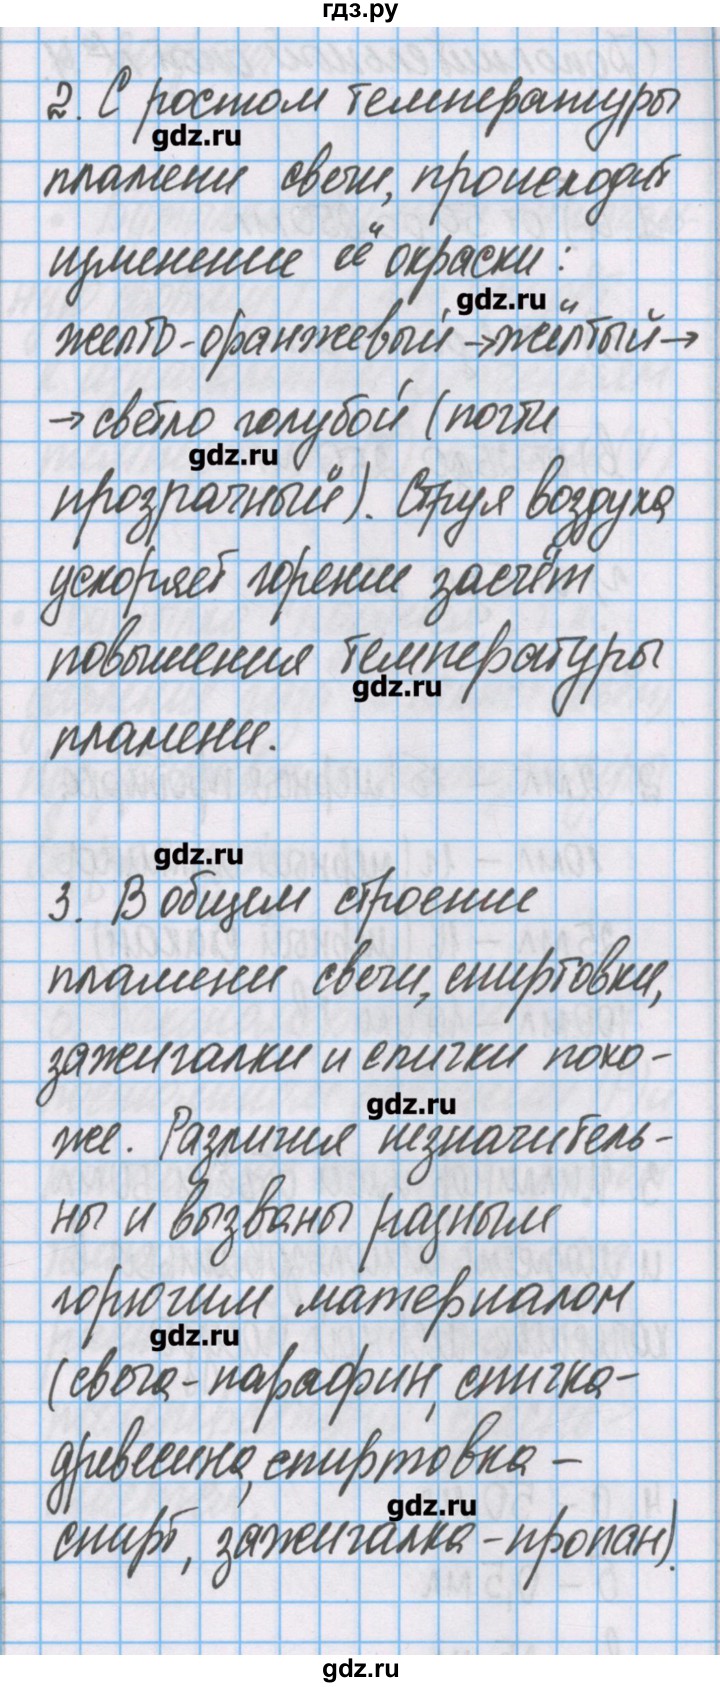 гдз.ру
2. С ростом температуры
gdz.ru
пламени свечи, происходит
изменение её окраски:
gdz.ru
желто-оранжевый → жёлтый →
→ светло голубой (почти
gdz.ru
прозрачный). Струя воздуха
ускоряет горение засчёт
повышения температуры
gdz.ru
пламени.
gdz.ru
3. В общем строение
пламени свечи, спиртовки,
зажигалки и спички похо-
gdz.ru
же. Различия незначитель-
ны и вызваны разным
горючим материалом
gdz.ru
(свеча - парафин, спичка -
древесина, спиртовка -
gdz.ru
спирт, зажигалка - пропан).
gdz.ru